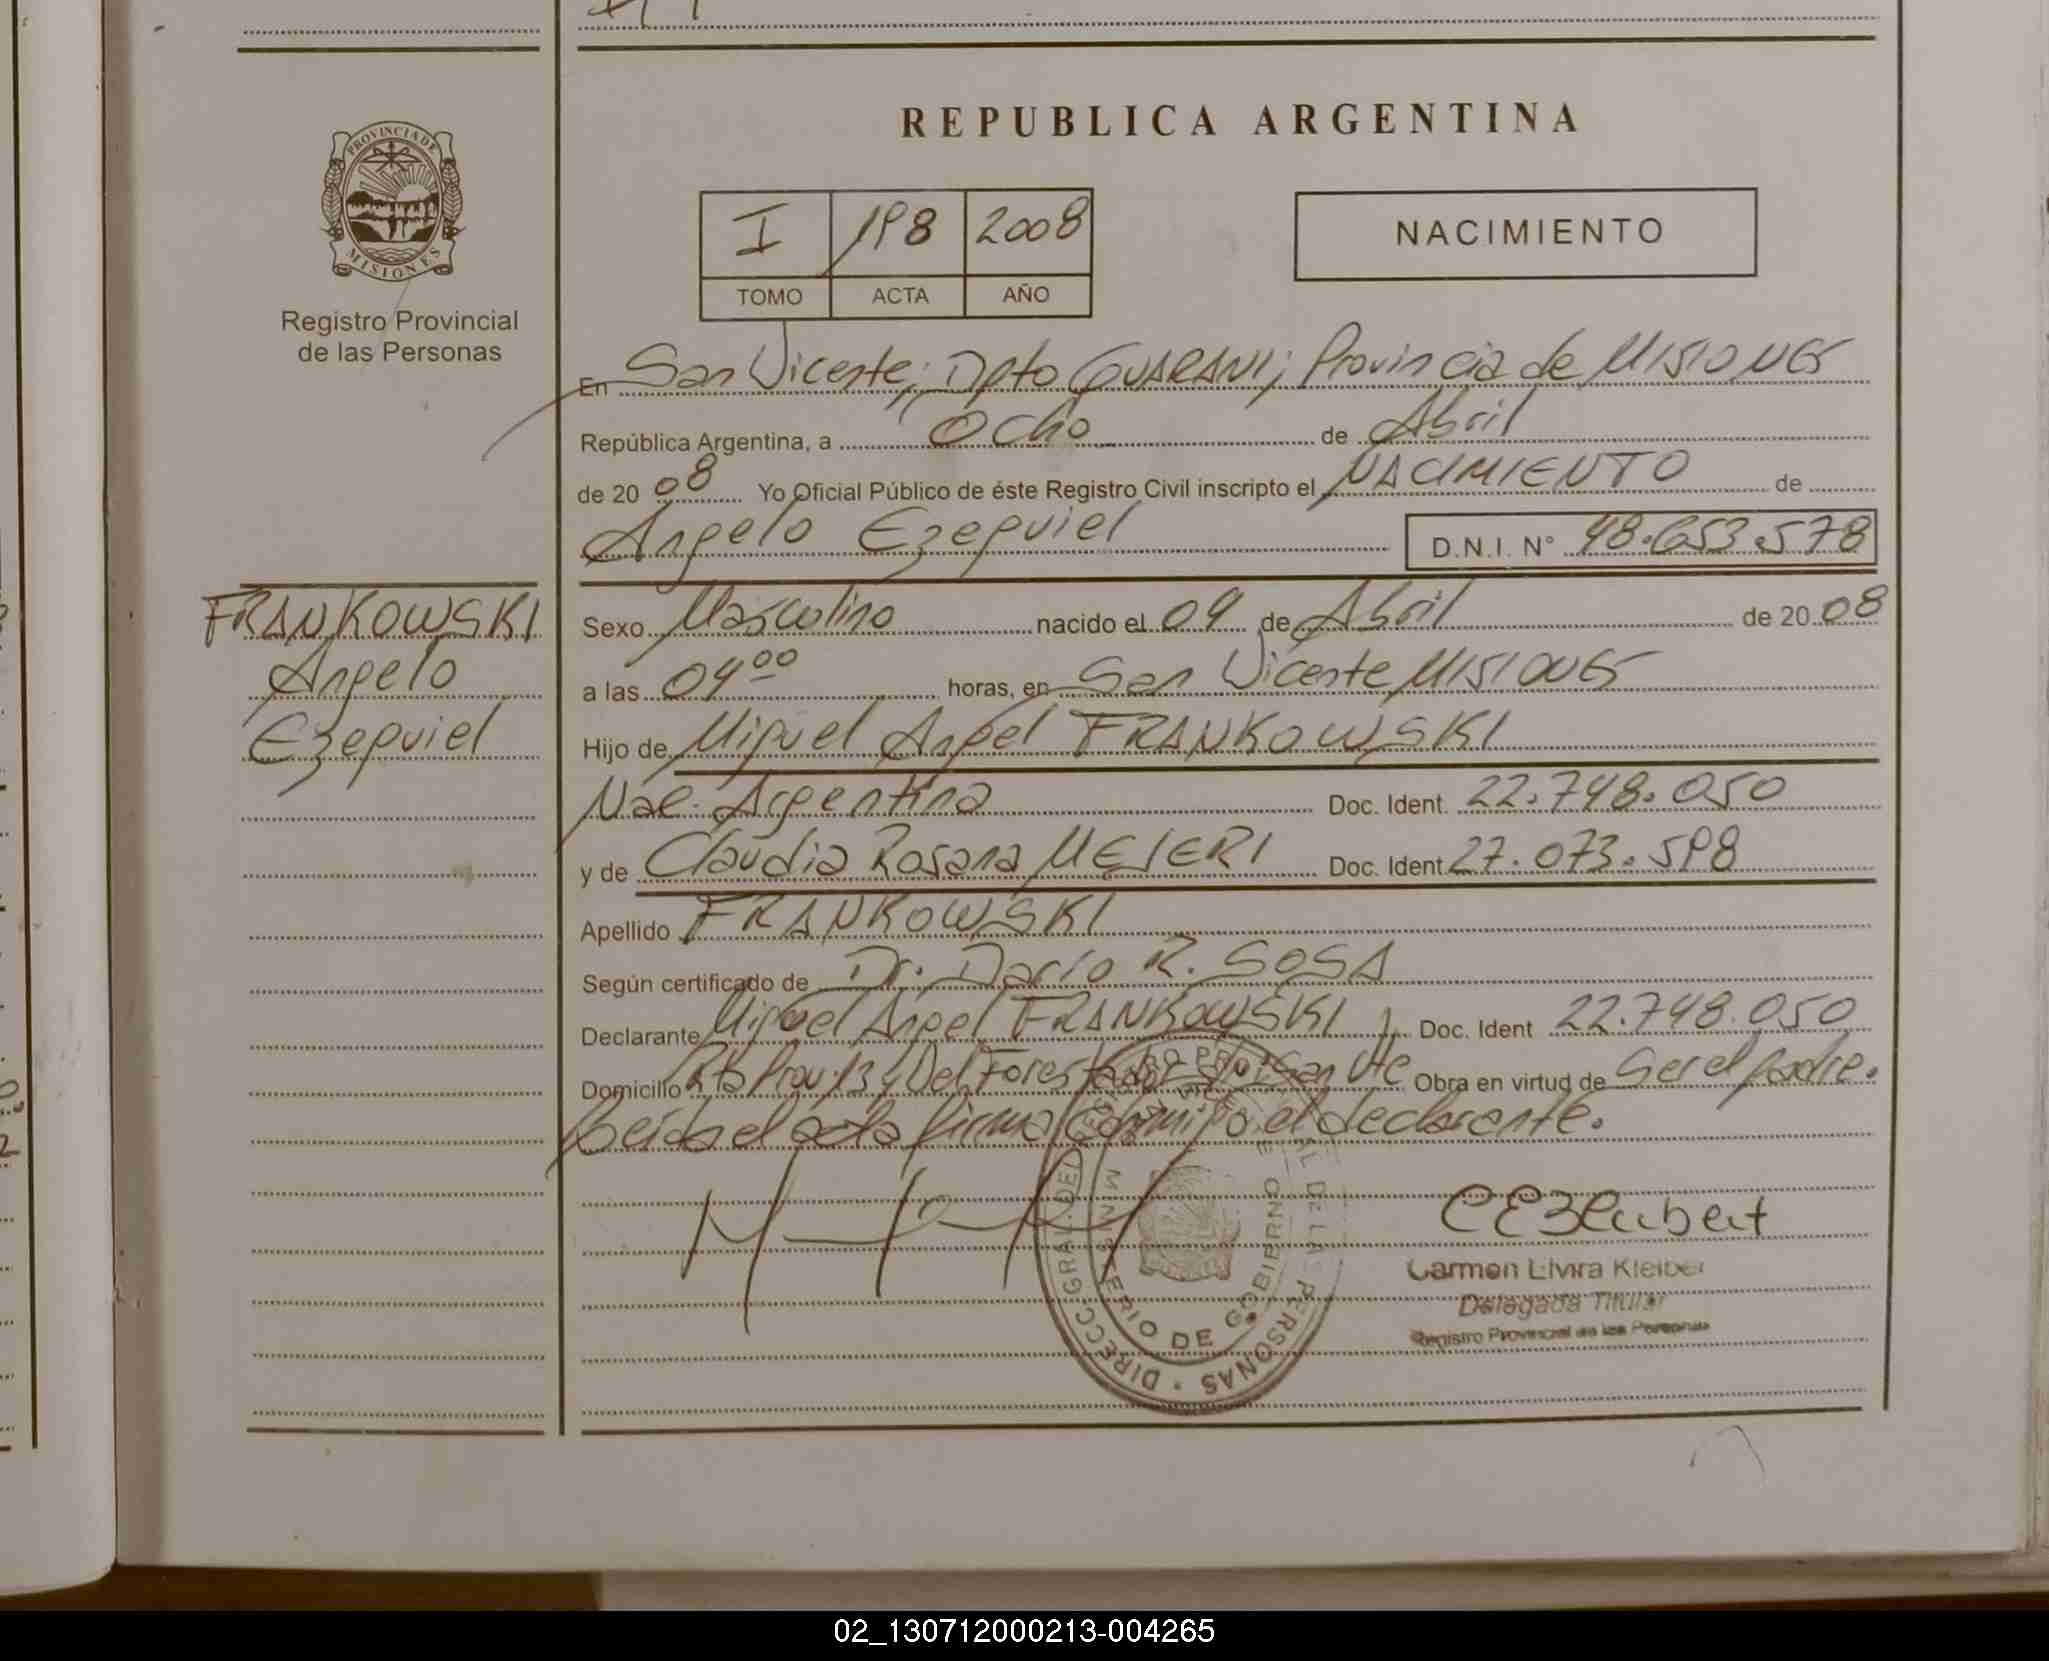 REPUBLICA ARGENTINA
PROVINCIA DE
MISIONES
Registro Provincial
de las Personas
I 198 2008
TOMO ACTA AÑO
NACIMIENTO
En San Vicente; Dpto GUARANI; Provincia de MISIONES
República Argentina, a Ocho de Abril
de 2008 Yo Oficial Público de éste Registro Civil inscripto el NACIMIENTO de
Angelo Ezequiel D.N.I. N° 48.653.578
FRANKOWSKI
Angelo
Ezequiel
Sexo Masculino nacido el 04 de Abril de 2008
a las 04⁰⁰ horas, en San Vicente MISIONES
Hijo de Miguel Angel FRANKOWSKI
Nac. Argentina Doc. Ident. 22.748.050
y de Claudia Rosana MEJERI Doc. Ident. 27.073.598
Apellido FRANKOWSKI
Según certificado de Dr. Dario R. SOSA
Declarante Miguel Angel FRANKOWSKI Doc. Ident 22.748.050
Domicilio Rta Prov. 13 y Del Forestador San Vte Obra en virtud de Ser el padre.
Leída el acta firma conmigo el declarante.
DIRECC. GRAL. DEL DE LAS PERSONAS
MINISTERIO DE GOBIERNO
Carmen Elvira Kleiber
Delegada Titular
Registro Provincial de las Personas
02_130712000213-004265